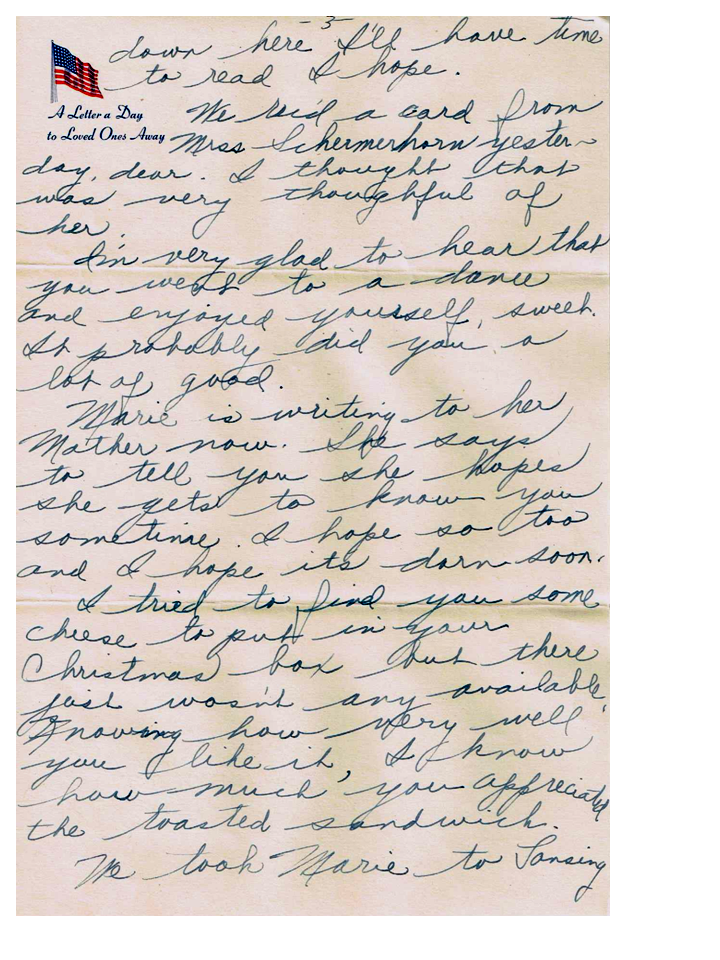 5
down here I'll have time
to read I hope.
A Letter a Day
to Loved Ones Away
We rec'd a card from
Mrss Schermerhorn yester-
day, dear. I thought that
was very thoughtful of
her.
I'm very glad to hear that
you went to a dance
and enjoyed yourself, sweet.
It probably did you a
lot of good.
Marie is writing to her
Mother now. She says
to tell you she hopes
she gets to know you
sometime. I hope so too
and I hope its darn soon.
I tried to find you some
cheese to put in your
Christmas box but there
just wasn't any available.
Knowing how very well
you like it, I know
how much you appreciated
the toasted sandwich.
We took Marie to Lansing